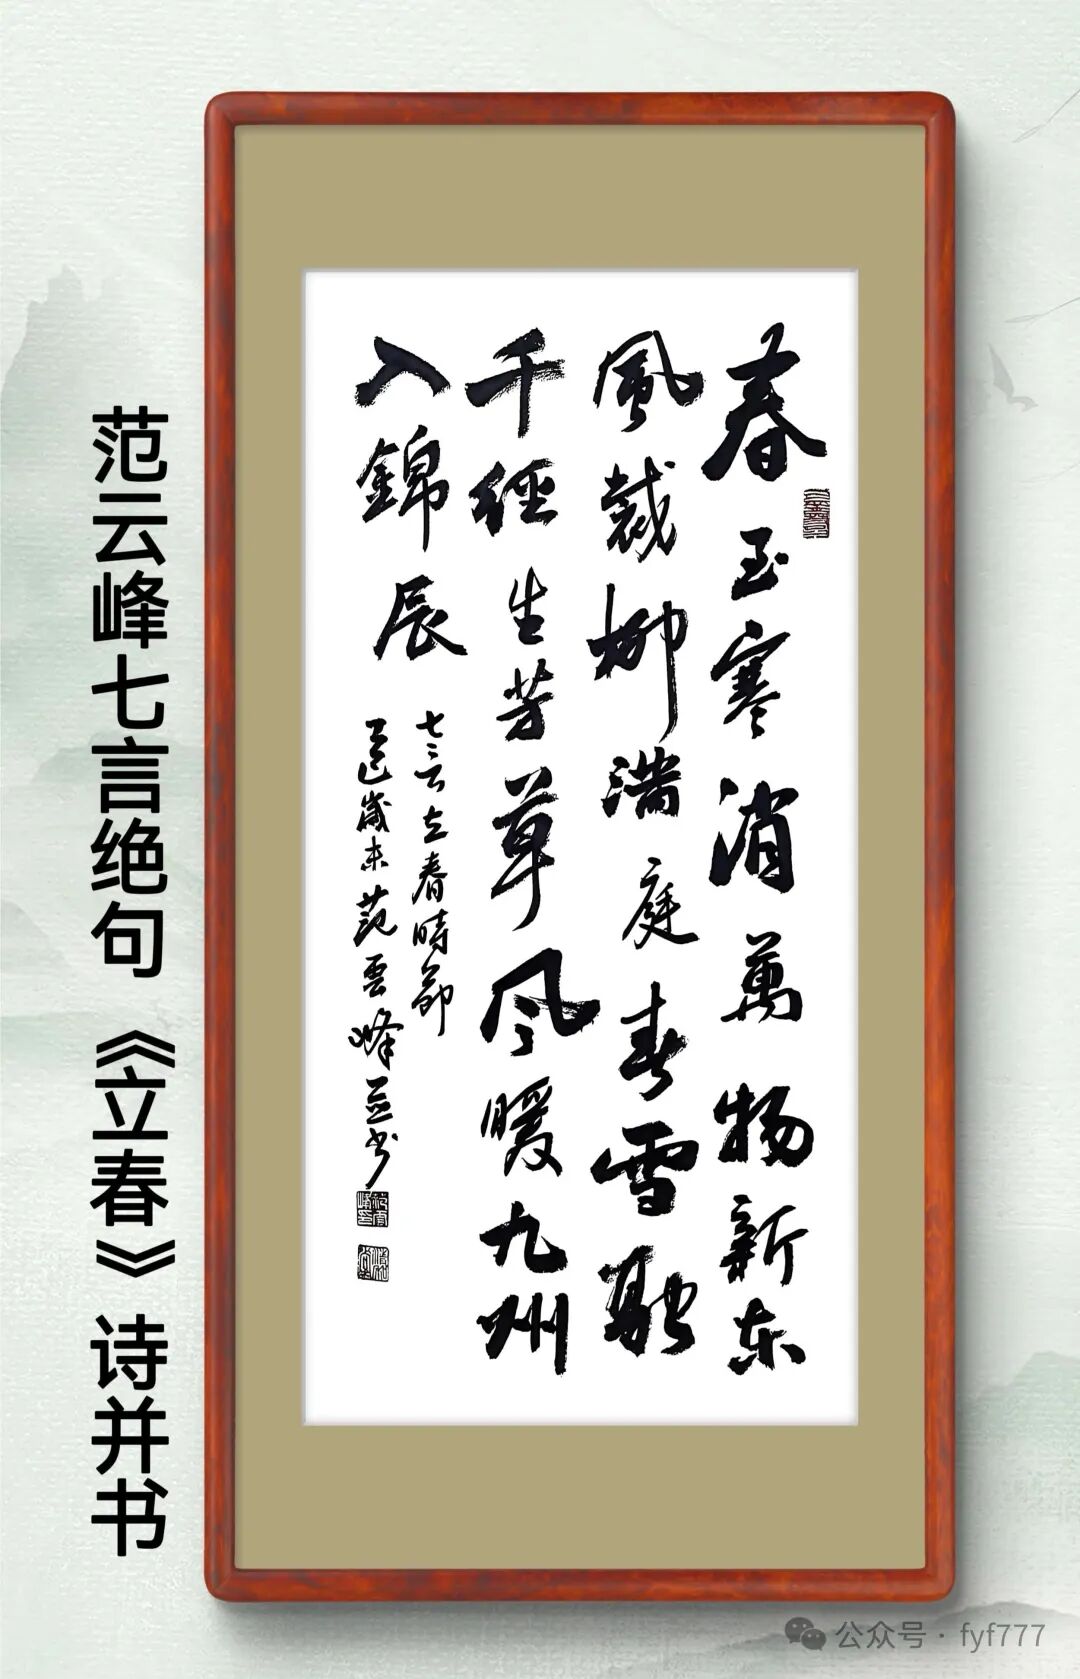 春至寒消萬物新东
風裁柳满庭春雪融
千徑生芳草风暖九州
入錦辰
立春時節
歲末范雲峰并书
范云峰七言绝句《立春》诗并书
公众号·fyf777